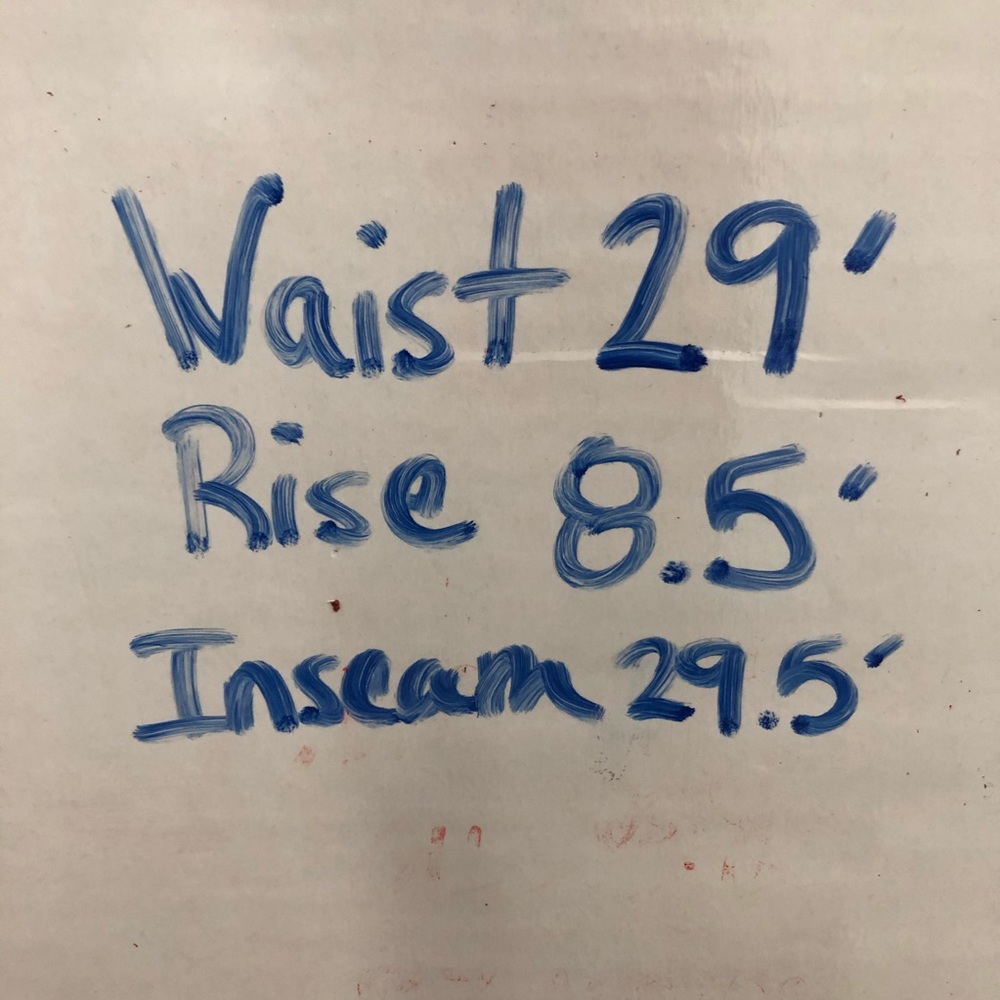 Waist 29'
Rise 8.5'
Inseam 29.5'